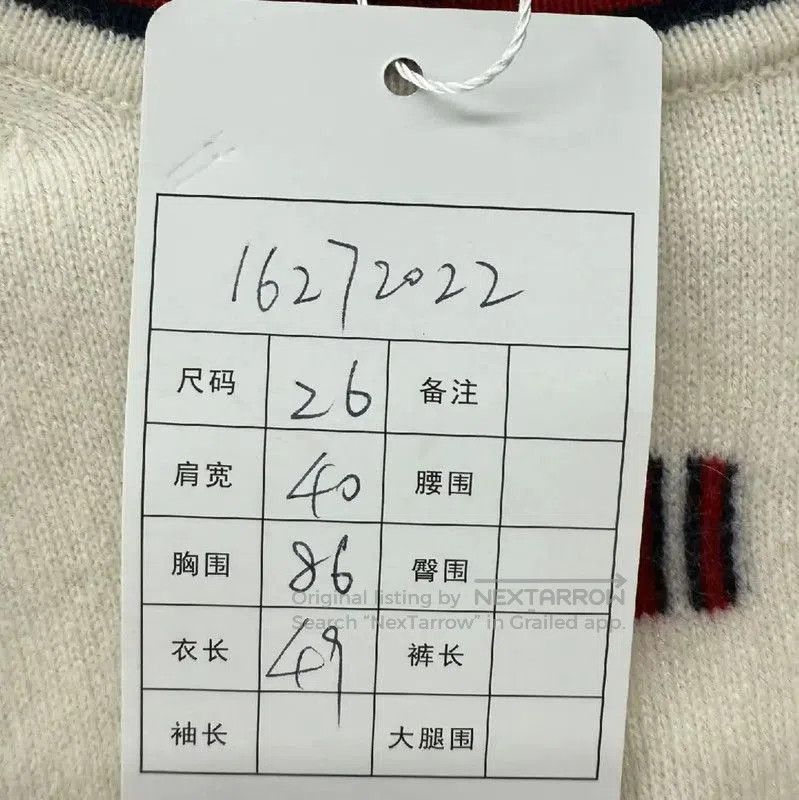 16272022
尺码 26 备注
肩宽 40 腰围
胸围 86 臀围
Original listing by NEXTARROW
Search "NexTarrow" in Grailed app.
衣长 49 裤长
袖长 大腿围